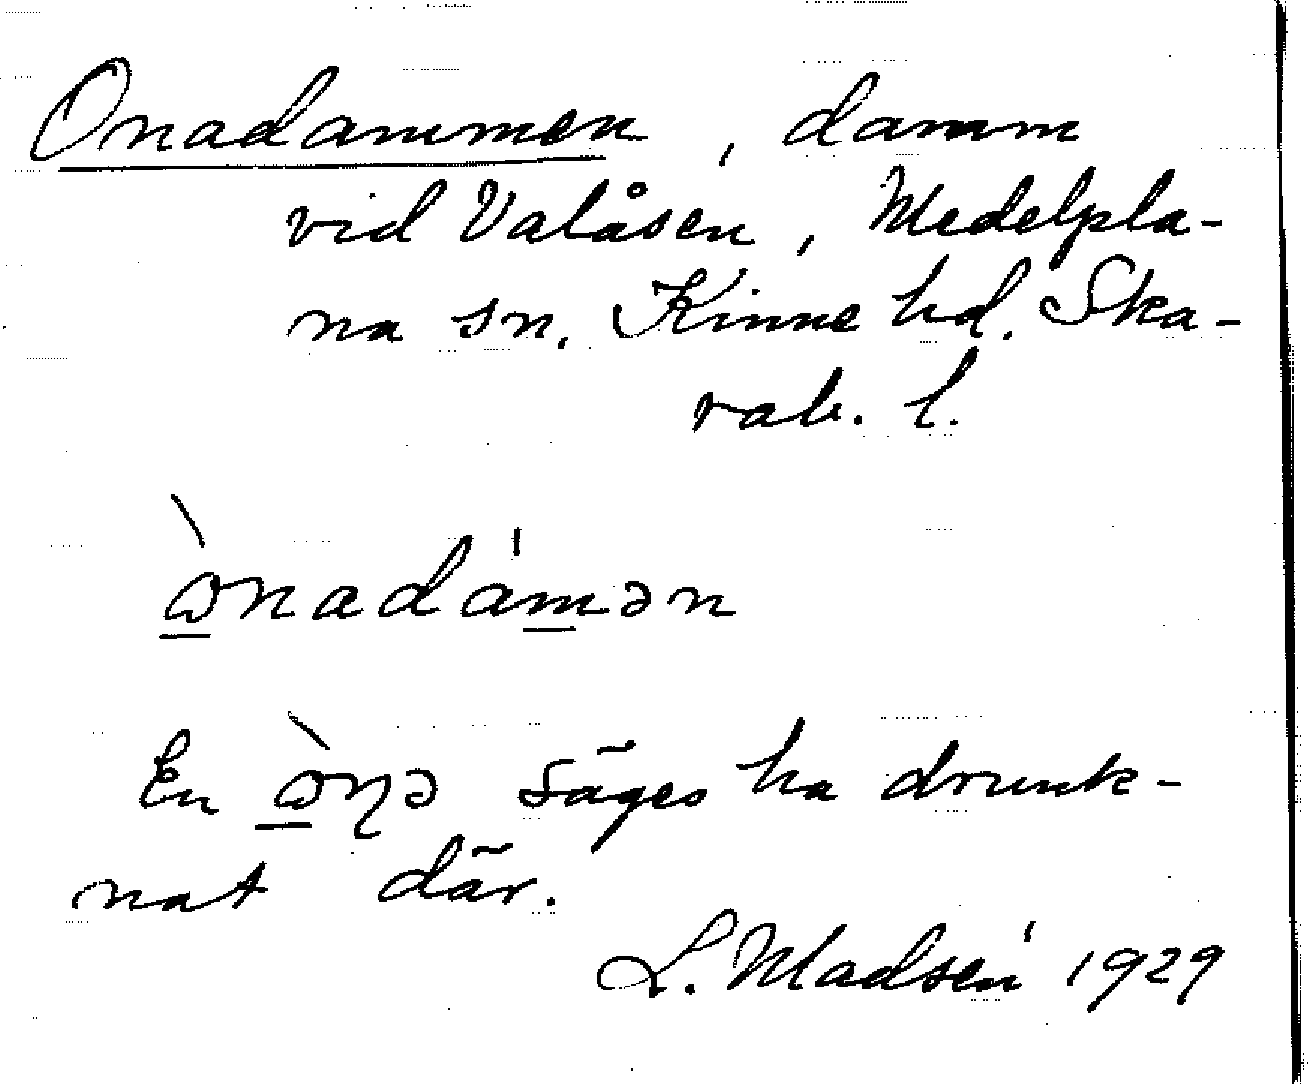 Onadammen, damm
vid Valåsen, Medelpla-
na sn. Kinne hd. Ska-
rab. l.
ὼnadámən
En ὼŋə säges ha drunk-
nat där.
L. Madsén 1929